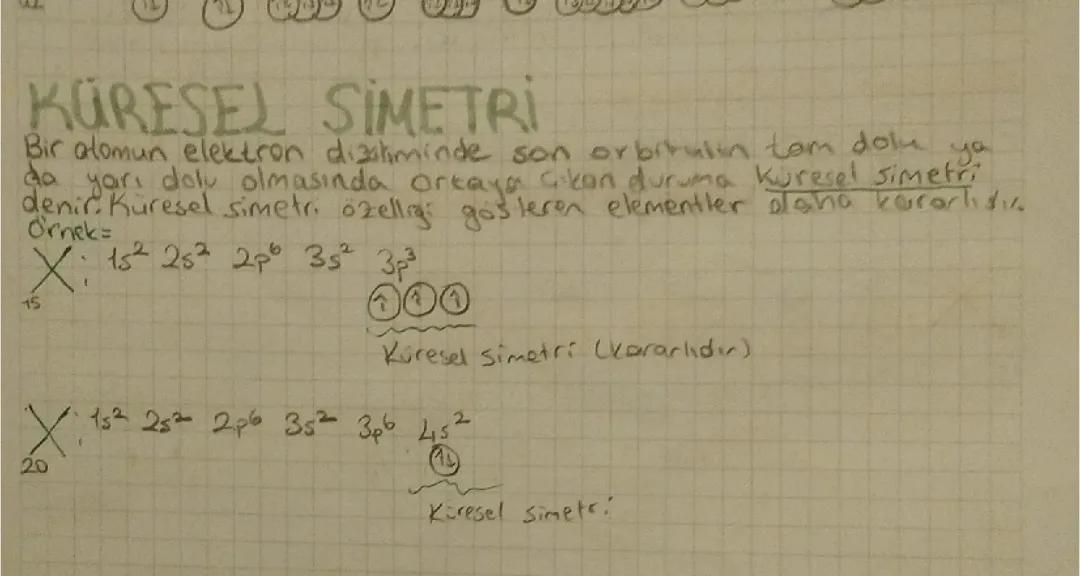 KÜRESEL SİMETRİ
Bir atomun elektron diziliminde son orbitalin tam dolu ya
da yarı dolu olmasında ortaya çıkan duruma küresel simetri
denir. Küresel simetri özelliği gösteren elementler daha kararlıdır.
Örnek=
X: 1s² 2s² 2p⁶ 3s² 3p³
15
↑ ↑ ↑
Küresel simetri (kararlıdır)
X: 1s² 2s² 2p⁶ 3s² 3p⁶ 4s²
20
↑↓
Küresel simetri